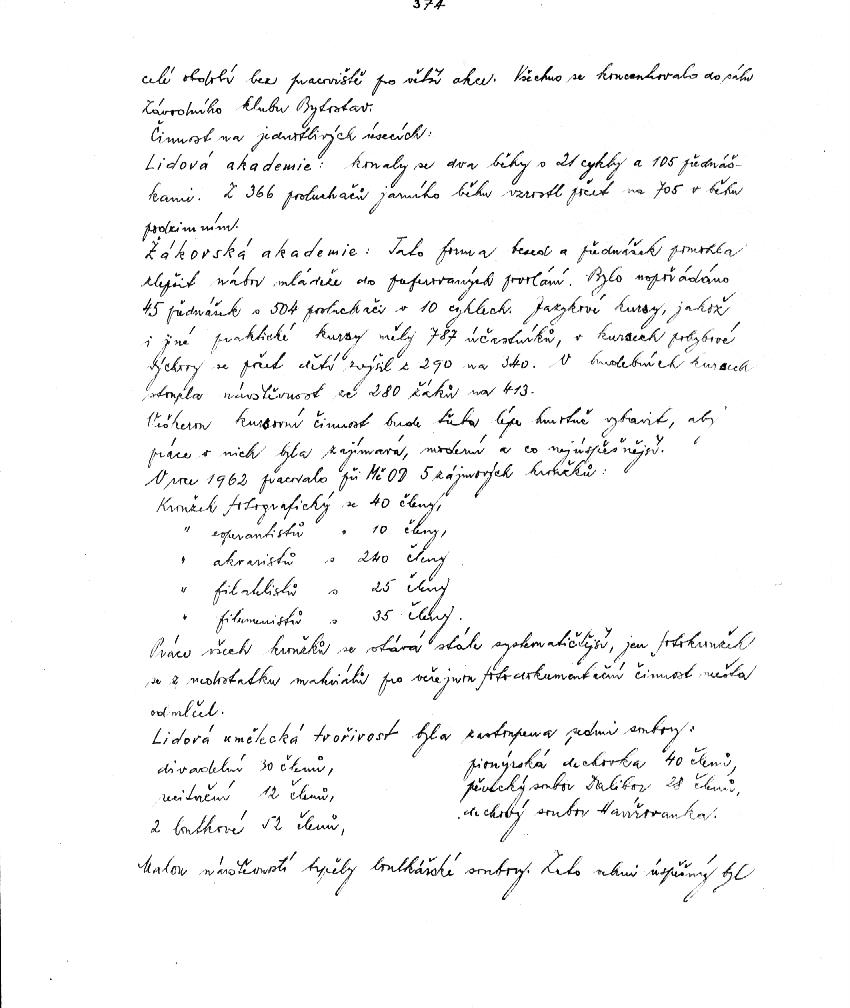 374
celé období bez pracoviště pro větší akce. Všechno se koncentrovalo do sálu
Závodního klubu Bytostav.
Činnost na jednotlivých úsecích:
Lidová akademie: konaly se dva běhy s 21 cykly a 105 přednáš-
kami. Z 366 posluchačů jarního běhu vzrostl počet na 705 v běhu
podzimním.
Žákovská akademie: Tato forma besed a přednášek pomohla
zlepšit nábor mládeže do preferovaných povolání. Bylo uspořádáno
45 přednášek s 504 posluchači v 10 cyklech. Jazykové kursy, jakož
i jiné praktické kursy měly 787 účastníků, v kursech pohybové
výchovy se počet dětí zvýšil z 290 na 340. V hudebních kursech
stoupla návštěvnost ze 280 žáků na 413.
Veškerou kursovní činnost bude třeba lépe hmotně vybavit, aby
práce v nich byla zajímavá, moderní a co nejúspěšnější.
V roce 1962 pracovalo při MěOD 5 zájmových kroužků:
Kroužek fotografický se 40 členy,
" esperantistů s 10 členy,
" akvaristů s 240 členy
" filatelistů s 25 členy
" filumenistů s 35 členy.
Práce všech kroužků se stává stále systematičtější, jen fotokroužek
se z nedostatku materiálů pro veřejnou fotodokumentační činnost města
odmlčel.
Lidová umělecká tvořivost byla zastoupena sedmi soubory:
divadelní 30 členů, pionýrská dechovka 40 členů,
recitační 12 členů, pěvecký soubor Dalibor 28 členů,
2 loutkové 52 členů, dechový soubor Havířovanka.
Malou návštěvností trpěly loutkářské soubory. Zato velmi úspěšný byl